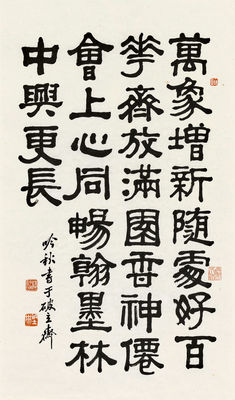 萬象增新隨處好百
花齊放滿園香神僊
會上心同暢翰墨林
中興更長
吟秋書于破立齋